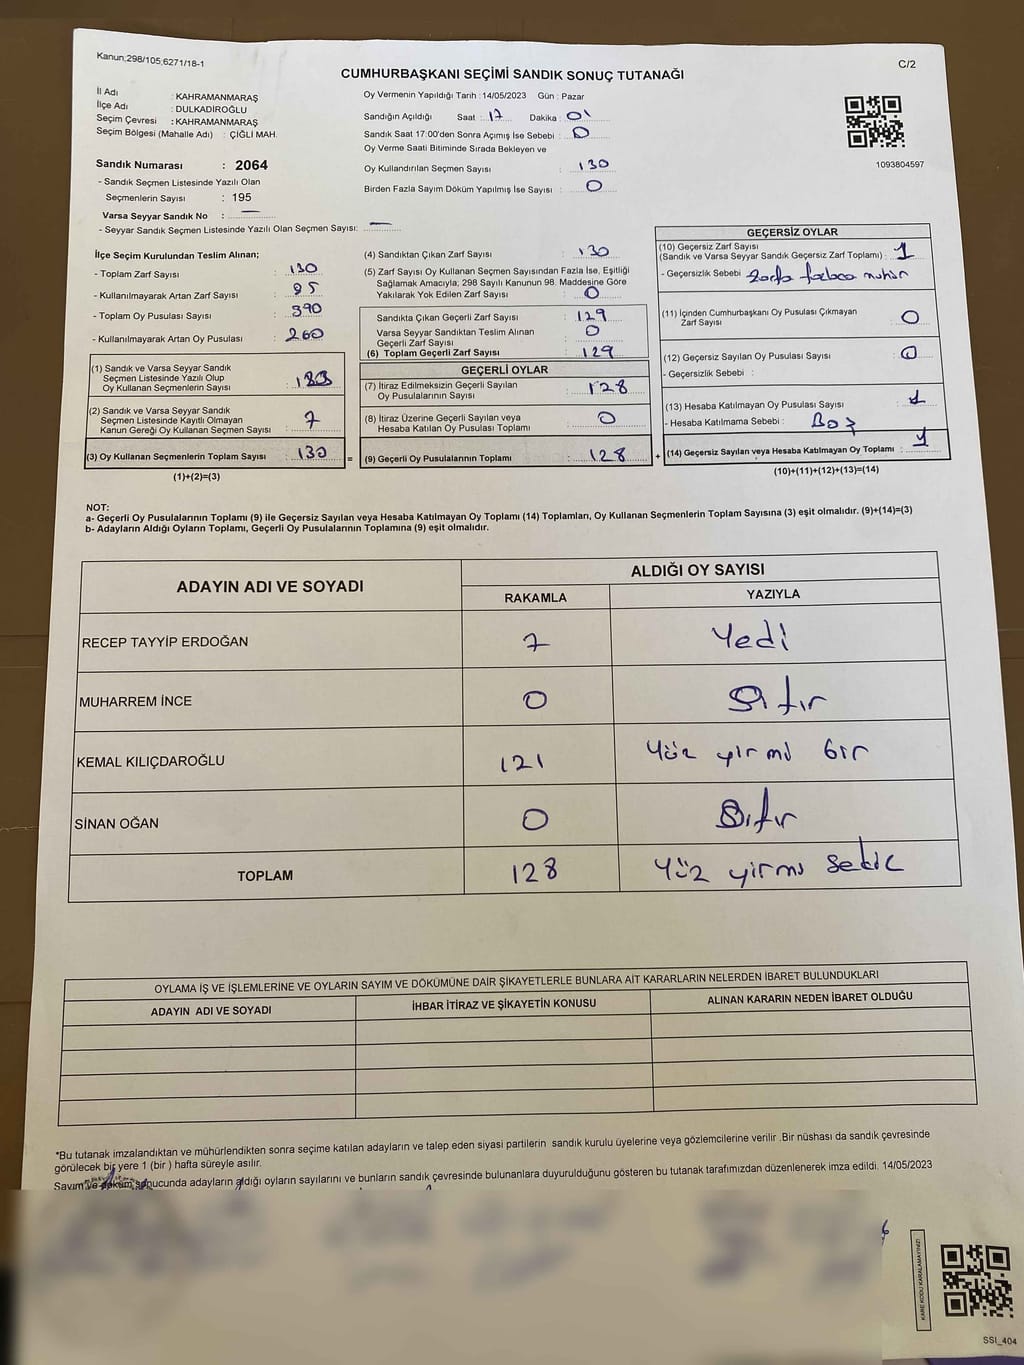 Kanun;298/105;6271/18-1
C/2
CUMHURBAŞKANI SEÇİMİ SANDIK SONUÇ TUTANAĞI
İl Adı : KAHRAMANMARAŞ
İlçe Adı : DULKADİROĞLU
Seçim Çevresi : KAHRAMANMARAŞ
Seçim Bölgesi (Mahalle Adı) : ÇİĞLİ MAH.
Sandık Numarası : 2064
- Sandık Seçmen Listesinde Yazılı Olan
Seçmenlerin Sayısı : 195
Varsa Seyyar Sandık No : —
- Seyyar Sandık Seçmen Listesinde Yazılı Olan Seçmen Sayısı: —
Oy Vermenin Yapıldığı Tarih : 14/05/2023 Gün : Pazar
Sandığın Açıldığı Saat : 17 Dakika : 01
Sandık Saat 17:00'den Sonra Açımış İse Sebebi : 0
Oy Verme Saati Bitiminde Sırada Bekleyen ve
Oy Kullandırılan Seçmen Sayısı : 130
Birden Fazla Sayım Döküm Yapılmış İse Sayısı : 0
1093804597
İlçe Seçim Kurulundan Teslim Alınan;
- Toplam Zarf Sayısı : 130
- Kullanılmayarak Artan Zarf Sayısı : 95
- Toplam Oy Pusulası Sayısı : 390
- Kullanılmayarak Artan Oy Pusulası : 260
(1) Sandık ve Varsa Seyyar Sandık
Seçmen Listesinde Yazılı Olup
Oy Kullanan Seçmenlerin Sayısı :
(2) Sandık ve Varsa Seyyar Sandık
Seçmen Listesinde Kayıtlı Olmayan
Kanun Gereği Oy Kullanan Seçmen Sayısı : 7
(3) Oy Kullanan Seçmenlerin Toplam Sayısı : 130
(1)+(2)=(3)
(4) Sandıktan Çıkan Zarf Sayısı : 130
(5) Zarf Sayısı Oy Kullanan Seçmen Sayısından Fazla İse, Eşitliği
Sağlamak Amacıyla; 298 Sayılı Kanunun 98. Maddesine Göre
Yakılarak Yok Edilen Zarf Sayısı : 0
Sandıkta Çıkan Geçerli Zarf Sayısı : 129
Varsa Seyyar Sandıktan Teslim Alınan
Geçerli Zarf Sayısı : 0
(6) Toplam Geçerli Zarf Sayısı : 129
GEÇERLİ OYLAR
(7) İtiraz Edilmeksizin Geçerli Sayılan
Oy Pusulalarının Sayısı : 128
(8) İtiraz Üzerine Geçerli Sayılan veya
Hesaba Katılan Oy Pusulası Toplamı : 0
= (9) Geçerli Oy Pusulalarının Toplamı : 128
GEÇERSİZ OYLAR
(10) Geçersiz Zarf Sayısı
(Sandık ve Varsa Seyyar Sandık Geçersiz Zarf Toplamı) : 1
- Geçersizlik Sebebi : Zarfa fazlaca mühür
(11) İçinden Cumhurbaşkanı Oy Pusulası Çıkmayan
Zarf Sayısı : 0
(12) Geçersiz Sayılan Oy Pusulası Sayısı : 0
- Geçersizlik Sebebi :
(13) Hesaba Katılmayan Oy Pusulası Sayısı : 1
- Hesaba Katılmama Sebebi : Boş
+ (14) Geçersiz Sayılan veya Hesaba Katılmayan Oy Toplamı : 1
(10)+(11)+(12)+(13)=(14)
NOT:
a- Geçerli Oy Pusulalarının Toplamı (9) ile Geçersiz Sayılan veya Hesaba Katılmayan Oy Toplamı (14) Toplamları, Oy Kullanan Seçmenlerin Toplam Sayısına (3) eşit olmalıdır. (9)+(14)=(3)
b- Adayların Aldığı Oyların Toplamı, Geçerli Oy Pusulalarının Toplamına (9) eşit olmalıdır.
ADAYIN ADI VE SOYADI
ALDIĞI OY SAYISI
RAKAMLA YAZIYLA
RECEP TAYYİP ERDOĞAN 7 Yedi
MUHARREM İNCE 0 Sıfır
KEMAL KILIÇDAROĞLU 121 Yüz yirmi bir
SİNAN OĞAN 0 Sıfır
TOPLAM 128 Yüz yirmi sekiz
OYLAMA İŞ VE İŞLEMLERİNE VE OYLARIN SAYIM VE DÖKÜMÜNE DAİR ŞİKAYETLERLE BUNLARA AİT KARARLARIN NELERDEN İBARET BULUNDUKLARI
ADAYIN ADI VE SOYADI İHBAR İTİRAZ VE ŞİKAYETİN KONUSU ALINAN KARARIN NEDEN İBARET OLDUĞU
*Bu tutanak imzalandıktan ve mühürlendikten sonra seçime katılan adayların ve talep eden siyasi partilerin sandık kurulu üyelerine veya gözlemcilerine verilir .Bir nüshası da sandık çevresinde
görülecek bir yere 1 (bir ) hafta süreyle asılır.
Sayım ve döküm sonucunda adayların aldığı oyların sayılarını ve bunların sandık çevresinde bulunanlara duyurulduğunu gösteren bu tutanak tarafımızdan düzenlenerek imza edildi. 14/05/2023
KARE KODU KARALAMAYINIZ!
SSI_404